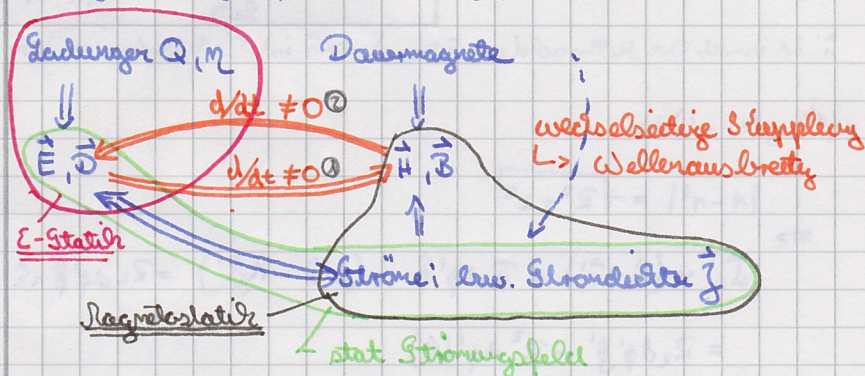 Ladungen Q, η
Dauermagnete
d/dt ≠ 0 ②
E⃗, D⃗
d/dt ≠ 0 ①
H⃗, B⃗
wechselseitige Kopplung
↳ Wellenausbreitg
E-Statik
Ströme i bzw. Stromdichte J⃗
Magnetostatik
stat Strömungsfeld